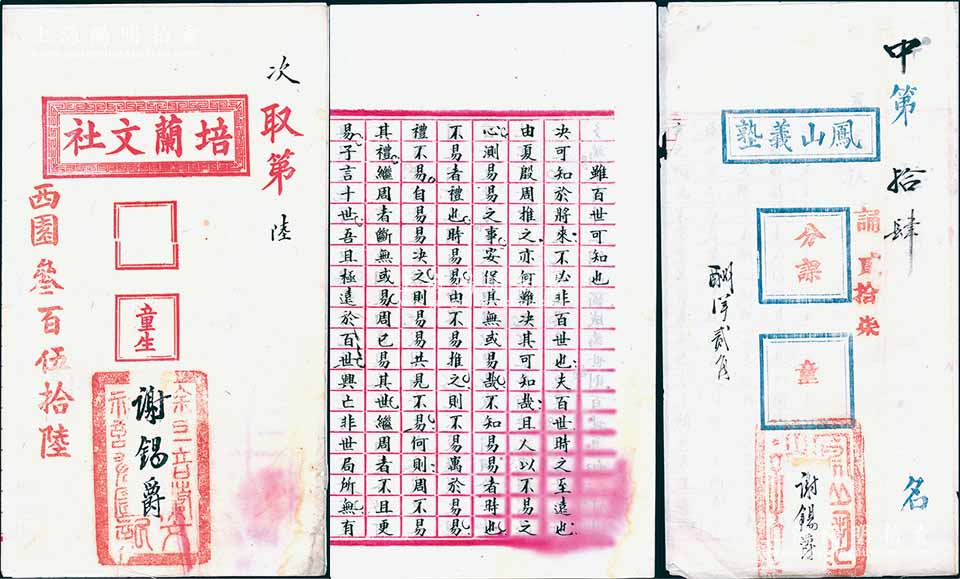 次取第陸
培蘭文社
童生
謝錫爵
西園叁百伍拾陸
雖百世可知也
決可知於將來不必非百世也夫百世時之至遠也
由夏殷周推之亦何難決其可知哉且人以不易之
心測易易之事安保其無或易哉不知易易者時也
不易者禮也時易易由不易推之則不易寓於易易
禮不易自易易決之則易易共見不易何則周不易
其禮繼周者斷無或易周已易其世繼周者不且更
易子言十世吾且極遠於百世興亡非世局所無有
中第拾肆名
鳳山義塾
誦貳拾柒
分課
童
謝錫爵
酬洋貳角